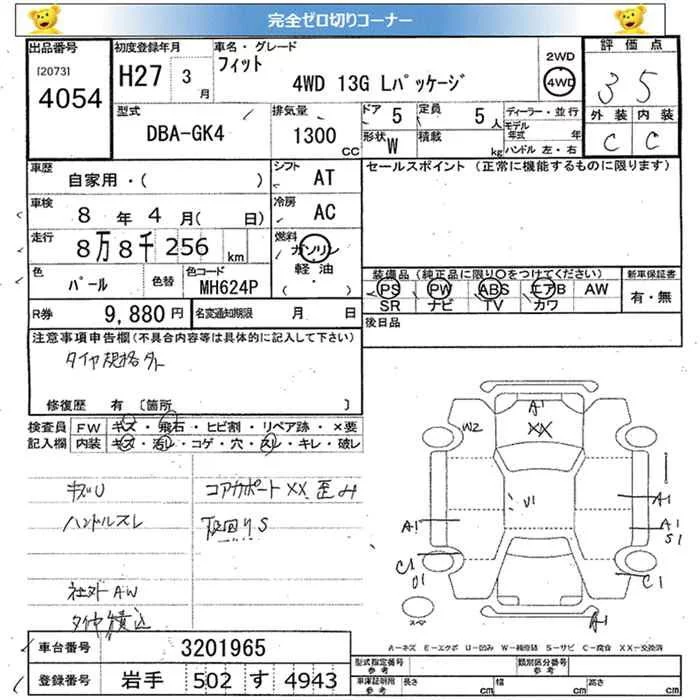 完全ゼロ切りコーナー
出品番号 初度登録年月 車名・グレード 評価点
[2073] H27 3月 フィット 2WD
4054 4WD 13G Lパッケージ 4WD 3 5
型式 排気量 ドア 5 定員 5人 ディーラー・並行 外装 内装
DBA-GK4 1300CC 形状 W 積載 kg モデル年式 年 C C
ハンドル 左・右
車歴 自家用・( ) シフト AT セールスポイント (正常に機能するものに限ります)
車検 8年 4月( 日) 冷房 AC
走行 8万8千256km 燃料 ガソリン
軽油
( ・ )
色 パール 色替 色コード MH624P 装備品(純正品に限り〇をつけてください) 新車保証書
PS PW ABS エアB AW 有・無
SR ナビ TV カワ
R券 9,880円 名変通知期限 月 日 後日品
注意事項申告欄(不具合内容等は具体的に記入して下さい)
タイヤ規格外
修復歴 有 〔箇所 〕
検査員 FW キズ・飛石・ヒビ割・リペア跡・×要
記入欄 内装 キズ・汚レ・コゲ・穴・スレ・キレ・破レ
キズU コアサポートXX歪み
ハンドルスレ 下回りS
社外AW
タイヤ積込
A1
XX
W2
U1
A1
A1
A1
S1
C1
U1
C1
A1
スペア
A-キズ E-エクボ U-凹み W-補修跡 S-サビ C-腐食 XX-交換済
車台番号 3201965
登録番号 岩手 502 す 4943
型式指定番号 参考 類別区分番号 参考
車庫証明用 参考 長さ cm 幅 cm 高さ cm